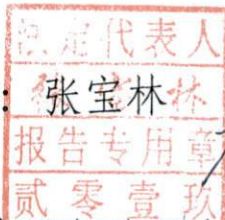 法定代表人
: 张宝林
报告专用章
贰零壹玖